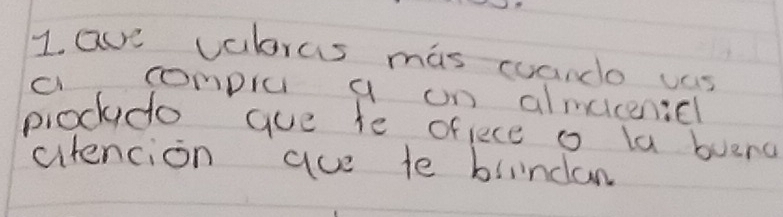 1. que valoras más cuando vas
a compra a un almacen: el
producto que te ofrece o la buena
atención que te brindan